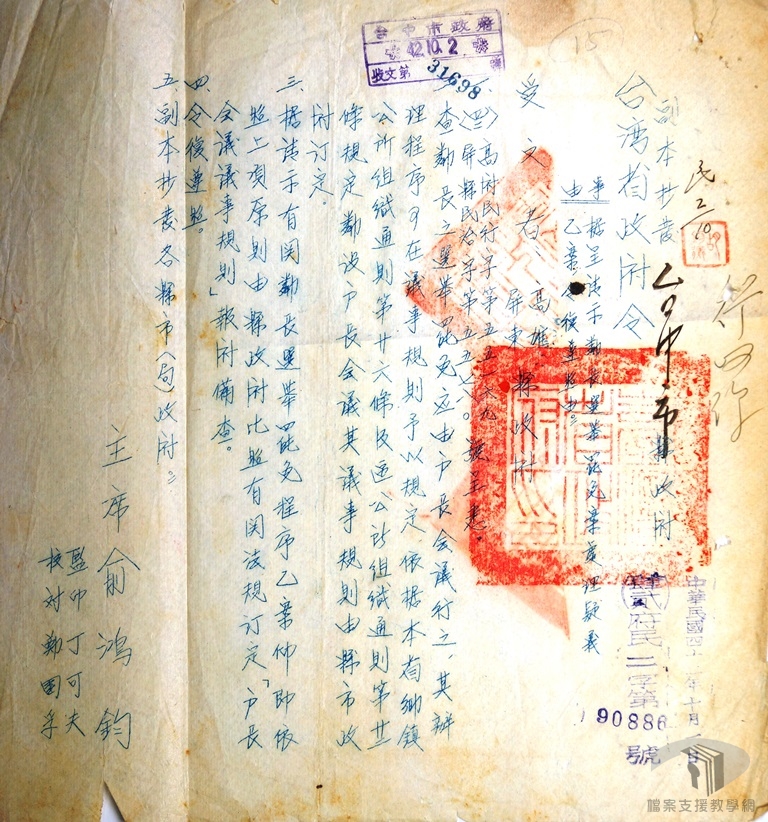 台中市政府
42.10.2.
收文第 31698 號
15
民二/10
副本抄發
台中市政府
台灣省政府令
中華民國四十二年十月一日
府民二字第
90886
號
事由
據呈請示鄰長選舉罷免案處理疑義
乙案令復遵照由
受文者 高雄、屏東縣政府
高府民行字第五五一六九
屏縣民治字第五五七八〇號呈悉。
查鄰長之選舉罷免應由戶長會議行之,其辦
理程序可在議事規則予以規定依據本省鄉鎮
公所組織通則第廿六條及區公所組織通則第廿
條規定鄰設戶長會議其議事規則由縣市政
府訂定。
三、據請示有関鄰長選舉罷免程序乙案仰即依
照上項原則由縣政府比照有関法規訂定「戶長
會議議事規則」報府備查。
四、令復遵照。
五、副本抄發各縣市(局)政府。
主席俞鴻鈞
監印丁可夫
核對鄭國
檔案支援教學網